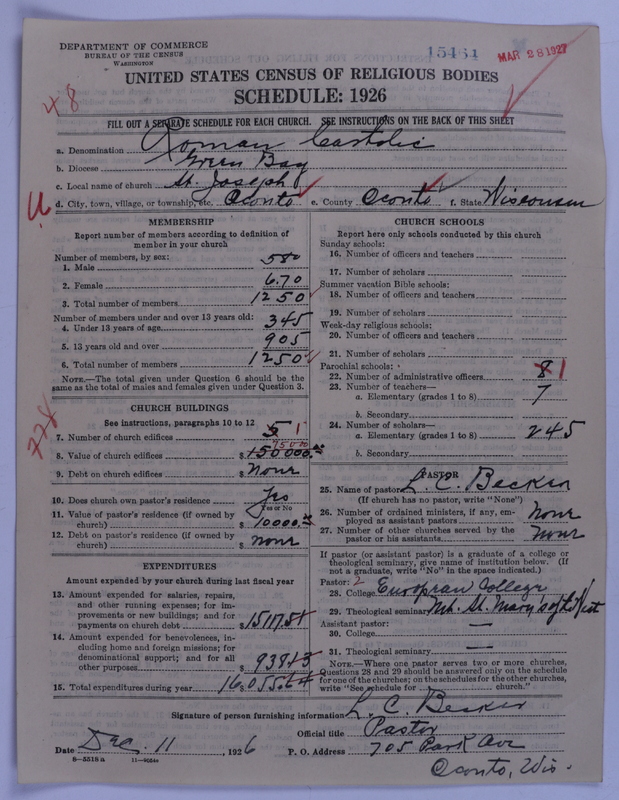 DEPARTMENT OF COMMERCE
BUREAU OF THE CENSUS
WASHINGTON
15464
MAR 28 1927
UNITED STATES CENSUS OF RELIGIOUS BODIES
SCHEDULE: 1926
48
FILL OUT A SEPARATE SCHEDULE FOR EACH CHURCH. SEE INSTRUCTIONS ON THE BACK OF THIS SHEET
a. Denomination Roman Catholic
b. Diocese Green Bay
c. Local name of church St. Joseph
d. City, town, village, or township, etc. Oconto e. County Oconto f. State Wisconsin
MEMBERSHIP
Report number of members according to definition of
member in your church
Number of members, by sex:
1. Male 580
2. Female 670
3. Total number of members 1250
Number of members under and over 13 years old:
4. Under 13 years of age 345
5. 13 years old and over 905
6. Total number of members 1250
NOTE.—The total given under Question 6 should be the
same as the total of males and females given under Question 3.
778
CHURCH BUILDINGS
See instructions, paragraphs 10 to 12
7. Number of church edifices 5 1
8. Value of church edifices $150000.00
9. Debt on church edifices $ None
10. Does church own pastor's residence Yes
Yes or No
11. Value of pastor's residence (if owned by
church) $10000.00
12. Debt on pastor's residence (if owned by
church) $ None
EXPENDITURES
Amount expended by your church during last fiscal year
13. Amount expended for salaries, repairs,
and other running expenses; for im-
provements or new buildings; and for
payments on church debt $15117.51
14. Amount expended for benevolences, in-
cluding home and foreign missions; for
denominational support; and for all
other purposes $938.13
15. Total expenditures during year $16,055.64
CHURCH SCHOOLS
Report here only schools conducted by this church
Sunday schools:
16. Number of officers and teachers
17. Number of scholars
Summer vacation Bible schools:
18. Number of officers and teachers
19. Number of scholars
Week-day religious schools:
20. Number of officers and teachers
21. Number of scholars
Parochial schools:
22. Number of administrative officers 8 1
23. Number of teachers—
a. Elementary (grades 1 to 8) 7
b. Secondary
24. Number of scholars—
a. Elementary (grades 1 to 8) 245
b. Secondary
PASTOR
25. Name of pastor L. C. Becker
(If church has no pastor, write "None")
26. Number of ordained ministers, if any, em-
ployed as assistant pastors None
27. Number of other churches served by the
pastor or his assistants None
If pastor (or assistant pastor) is a graduate of a college or
theological seminary, give name of institution below. (If
not a graduate, write "No" in the space indicated.)
Pastor: 2
28. College European College
29. Theological seminary Mt. St. Mary's of the West
Assistant pastor: —
30. College
31. Theological seminary —
NOTE.—Where one pastor serves two or more churches,
Questions 28 and 29 should be answered only on the schedule
for one of the churches; on the schedules for the other churches,
write "See schedule for church."
Signature of person furnishing information L. C. Becker
Official title Pastor
Date Dec. 11, 1926 P. O. Address 705 Park Ave
8—5518a 11—9054a
Oconto, Wis.